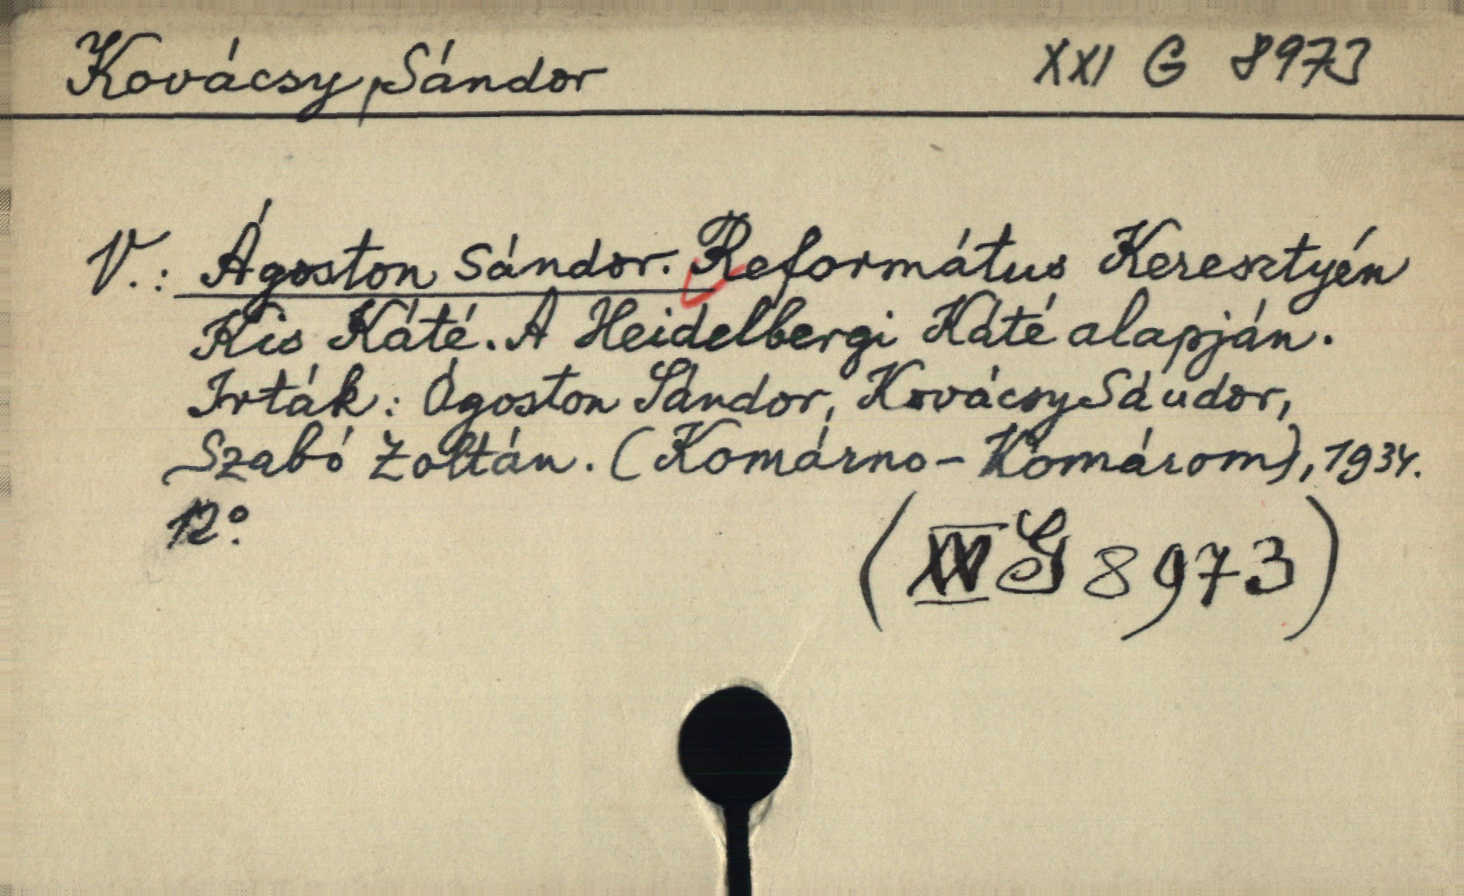 Kovácsy, Sándor XXI G 8973
V.: Ágoston Sándor. Református Keresztyén
Kis Káté. A Heidelbergi Káté alapján.
Irták: Ágoston Sándor, Kovácsy Sándor,
Szabó Zoltán. (Komárno-Komárom), 1934.
12°.
( G 8973)